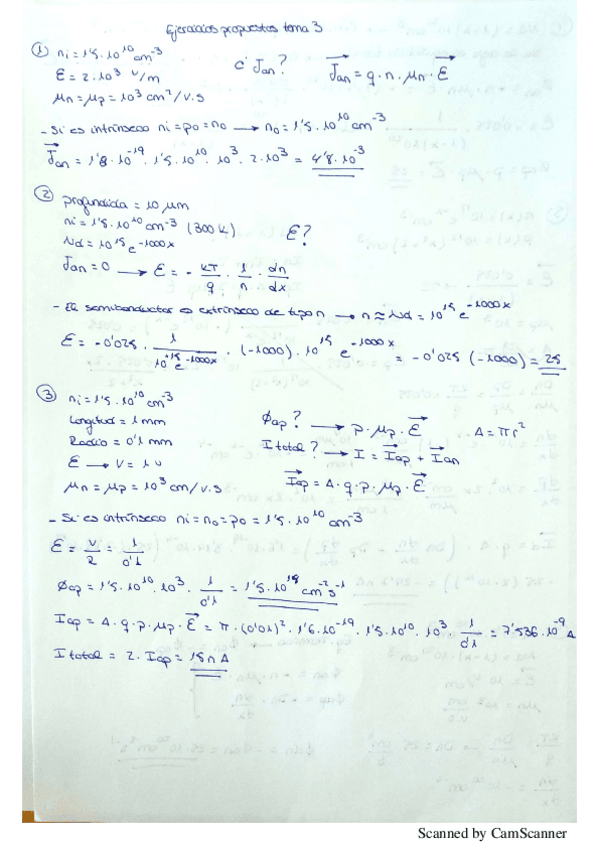 Ejercicios propuestos tema 3
① ni = 1'5·10¹⁰ cm⁻³ ¿Jan? Jan = q·n·μn·E
E = 2·10³ V/m
μn = μp = 10³ cm²/V.s
- Si es intrínseco ni = po = no → no = 1'5·10¹⁰ cm⁻³
Jan = 1'8·10⁻¹⁹·1'5·10¹⁰·10³·2·10³ = 4'8·10⁻³
② profundida = 10 μm
ni = 1'5·10¹⁰ cm⁻³ (300 K) E?
Nd = 10¹⁵ e⁻¹⁰⁰⁰ˣ
Jan = 0 → E = - KT/q · 1/n · dn/dx
- El semiconductor es extrínseco de tipo n → n ≈ Nd = 10¹⁵ e⁻¹⁰⁰⁰ˣ
E = -0'025 · 1/10¹⁵e⁻¹⁰⁰⁰ˣ · (-1000)·10¹⁵ e⁻¹⁰⁰⁰ˣ = -0'025 (-1000) = 25
③ ni = 1'5·10¹⁰ cm⁻³
Longitud = 1 mm Φap? → p·μp·E A = πr²
Radio = 0'1 mm I total? → I = Iap + Ian
E → V = 1 V Iap = A·q·p·μp·E
μn = μp = 10³ cm/V.s
- Si es intrínseco ni = no = po = 1'5·10¹⁰ cm⁻³
E = V/2 = 1/0'1
Φap = 1'5·10¹⁰·10³· 1/0'1 = 1'5·10¹⁴ cm⁻² s⁻¹
Iap = A·q·p·μp·E = π·(0'01)²·1'6·10⁻¹⁹·1'5·10¹⁰·10³ 1/0'1 = 7'536·10⁻⁹ A
I total = 2·Iap = 15 n A
Scanned by CamScanner